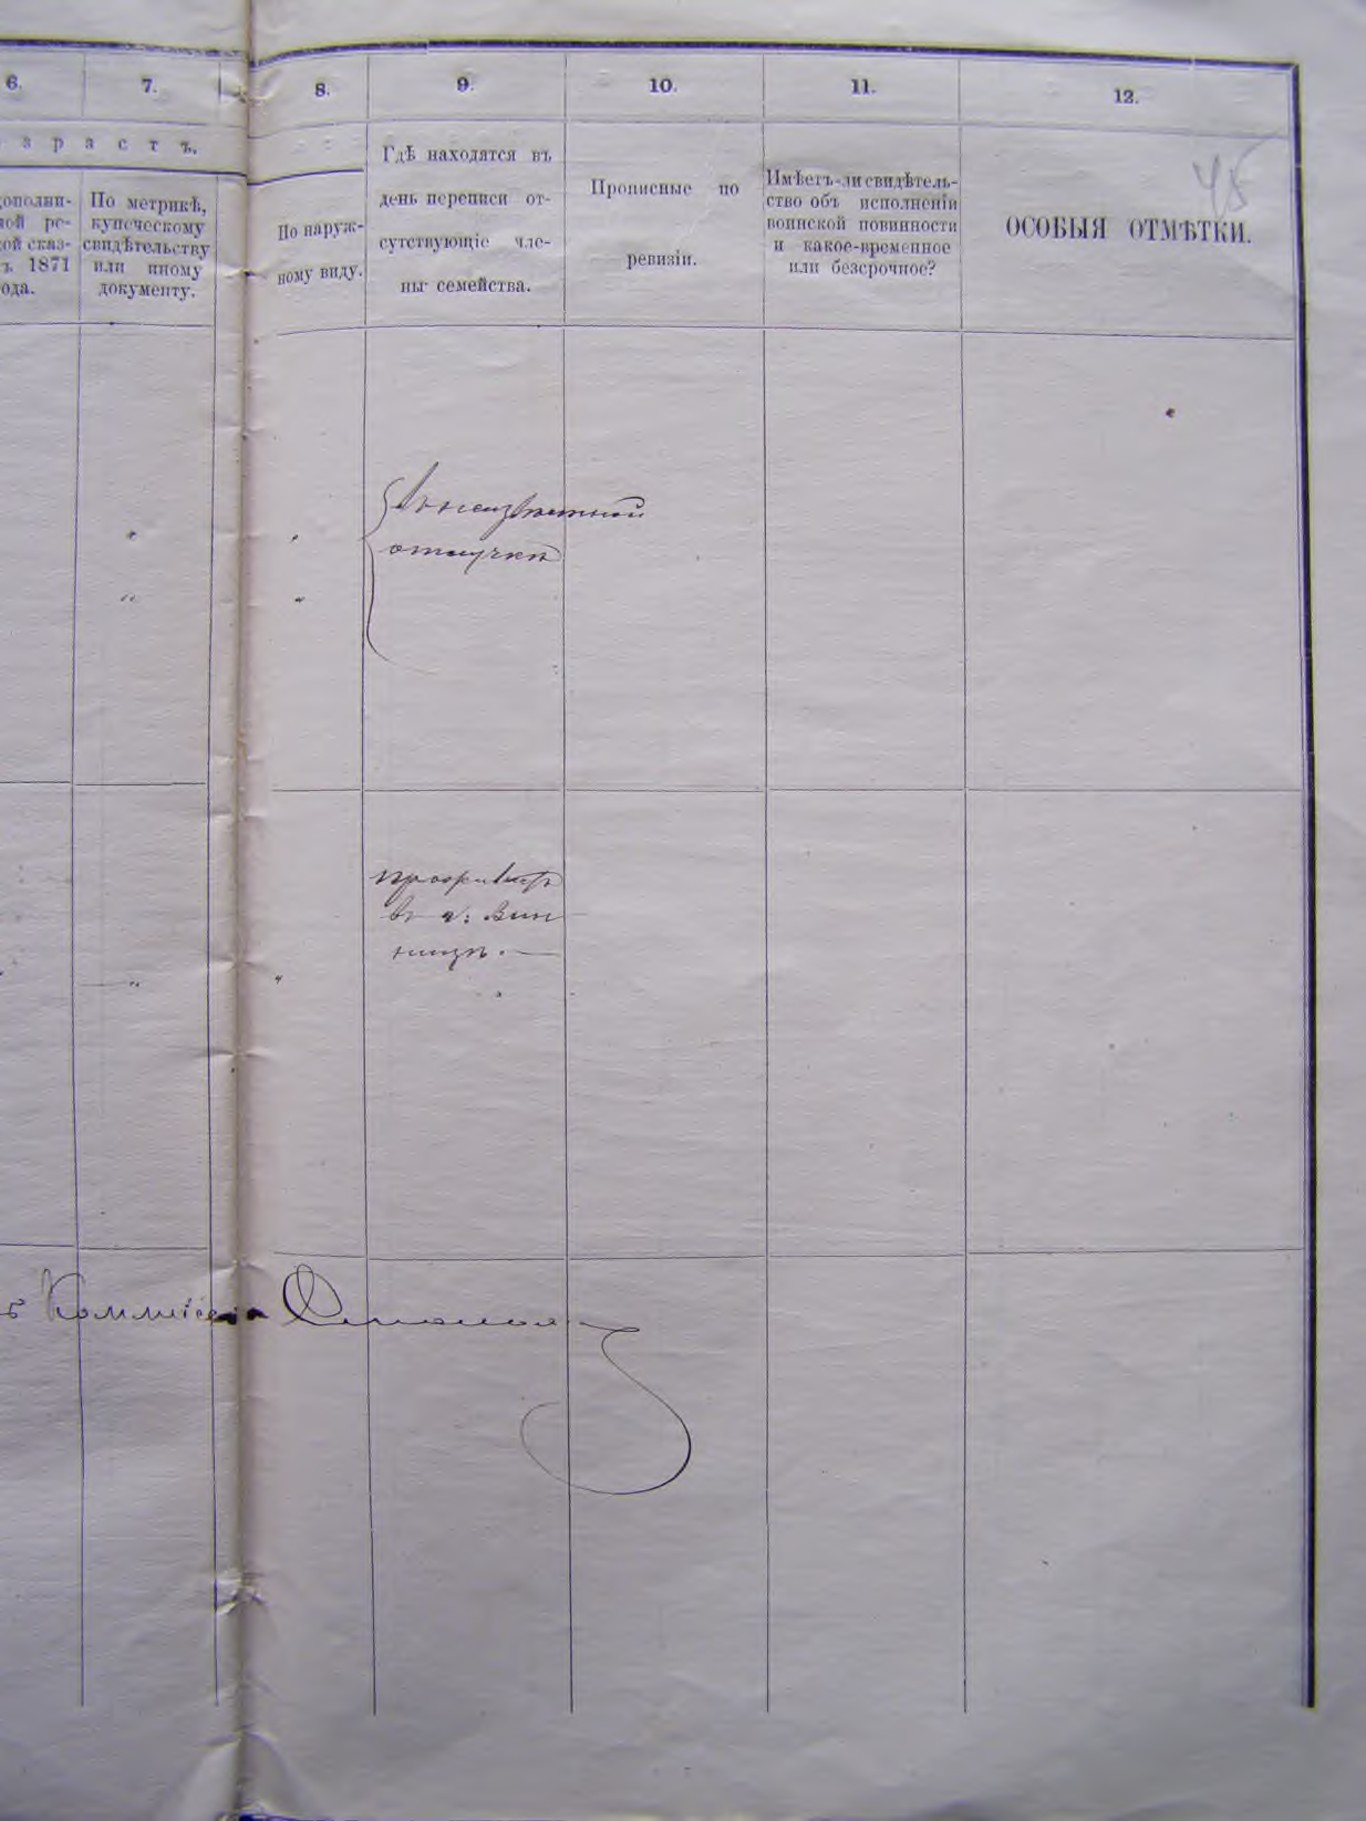 6.
7.
8.
9.
10.
11.
12.
45
з р а с т ъ.
дополни-
ной ре-
ской сказ-
ъ 1871
ода.
По метрикѣ,
купеческому
свидѣтельству
или иному
документу.
По наруж-
ному виду.
Гдѣ находятся въ
день переписи от-
сутствующіе чле-
ны семейства.
Прописные по
ревизіи.
Имѣетъ-ли свидѣтель-
ство объ исполненіи
воинской повинности
и какое-временное
или безсрочное?
ОСОБЫЯ ОТМѢТКИ.
въ неизвѣстной
отлучкѣ
въ г: Вин
ницѣ. —
Коммисіи